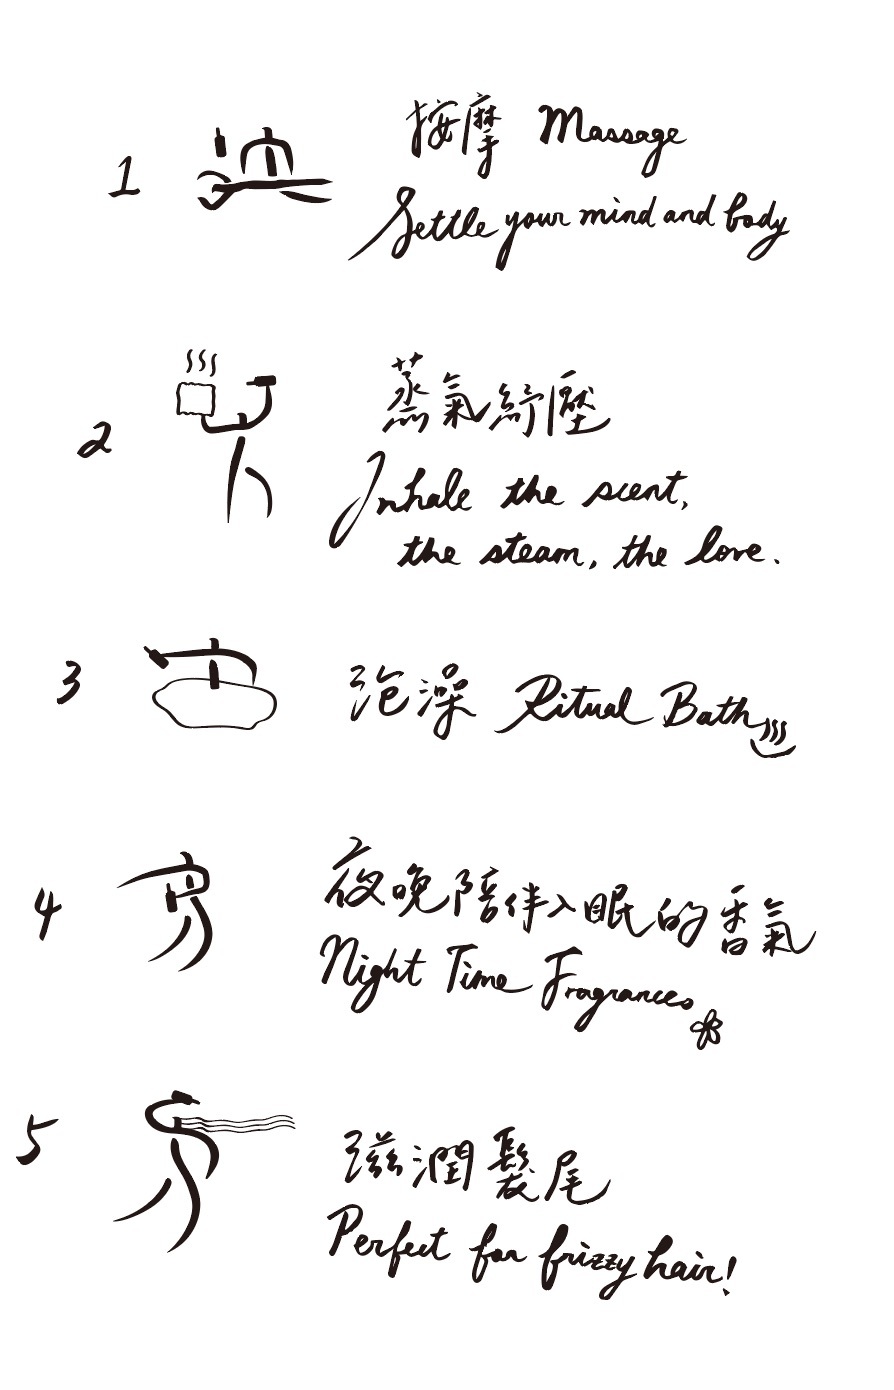 1
按摩 Massage
Settle your mind and body
2
蒸氣紓壓
Inhale the scent,
the steam, the love.
3
泡澡 Ritual Bath
4
夜晚陪伴入眠的香氣
Night Time Fragrances
5
滋潤髮尾
Perfect for frizzy hair!